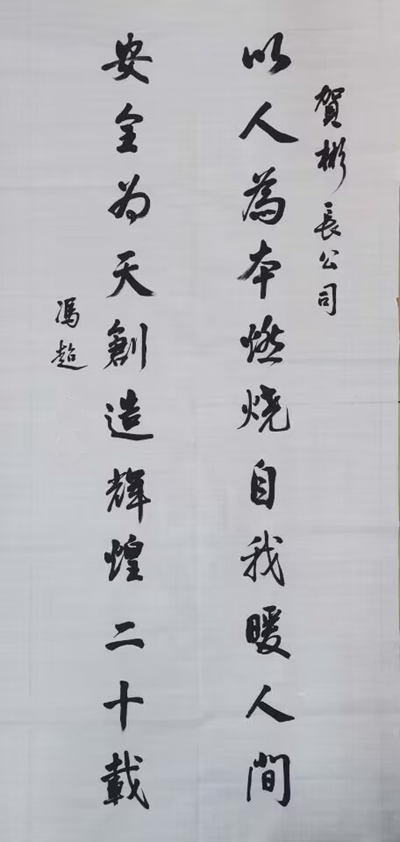 賀彬長公司
以人為本燃烧自我暖人間
安全为天創造輝煌二十載
馮超